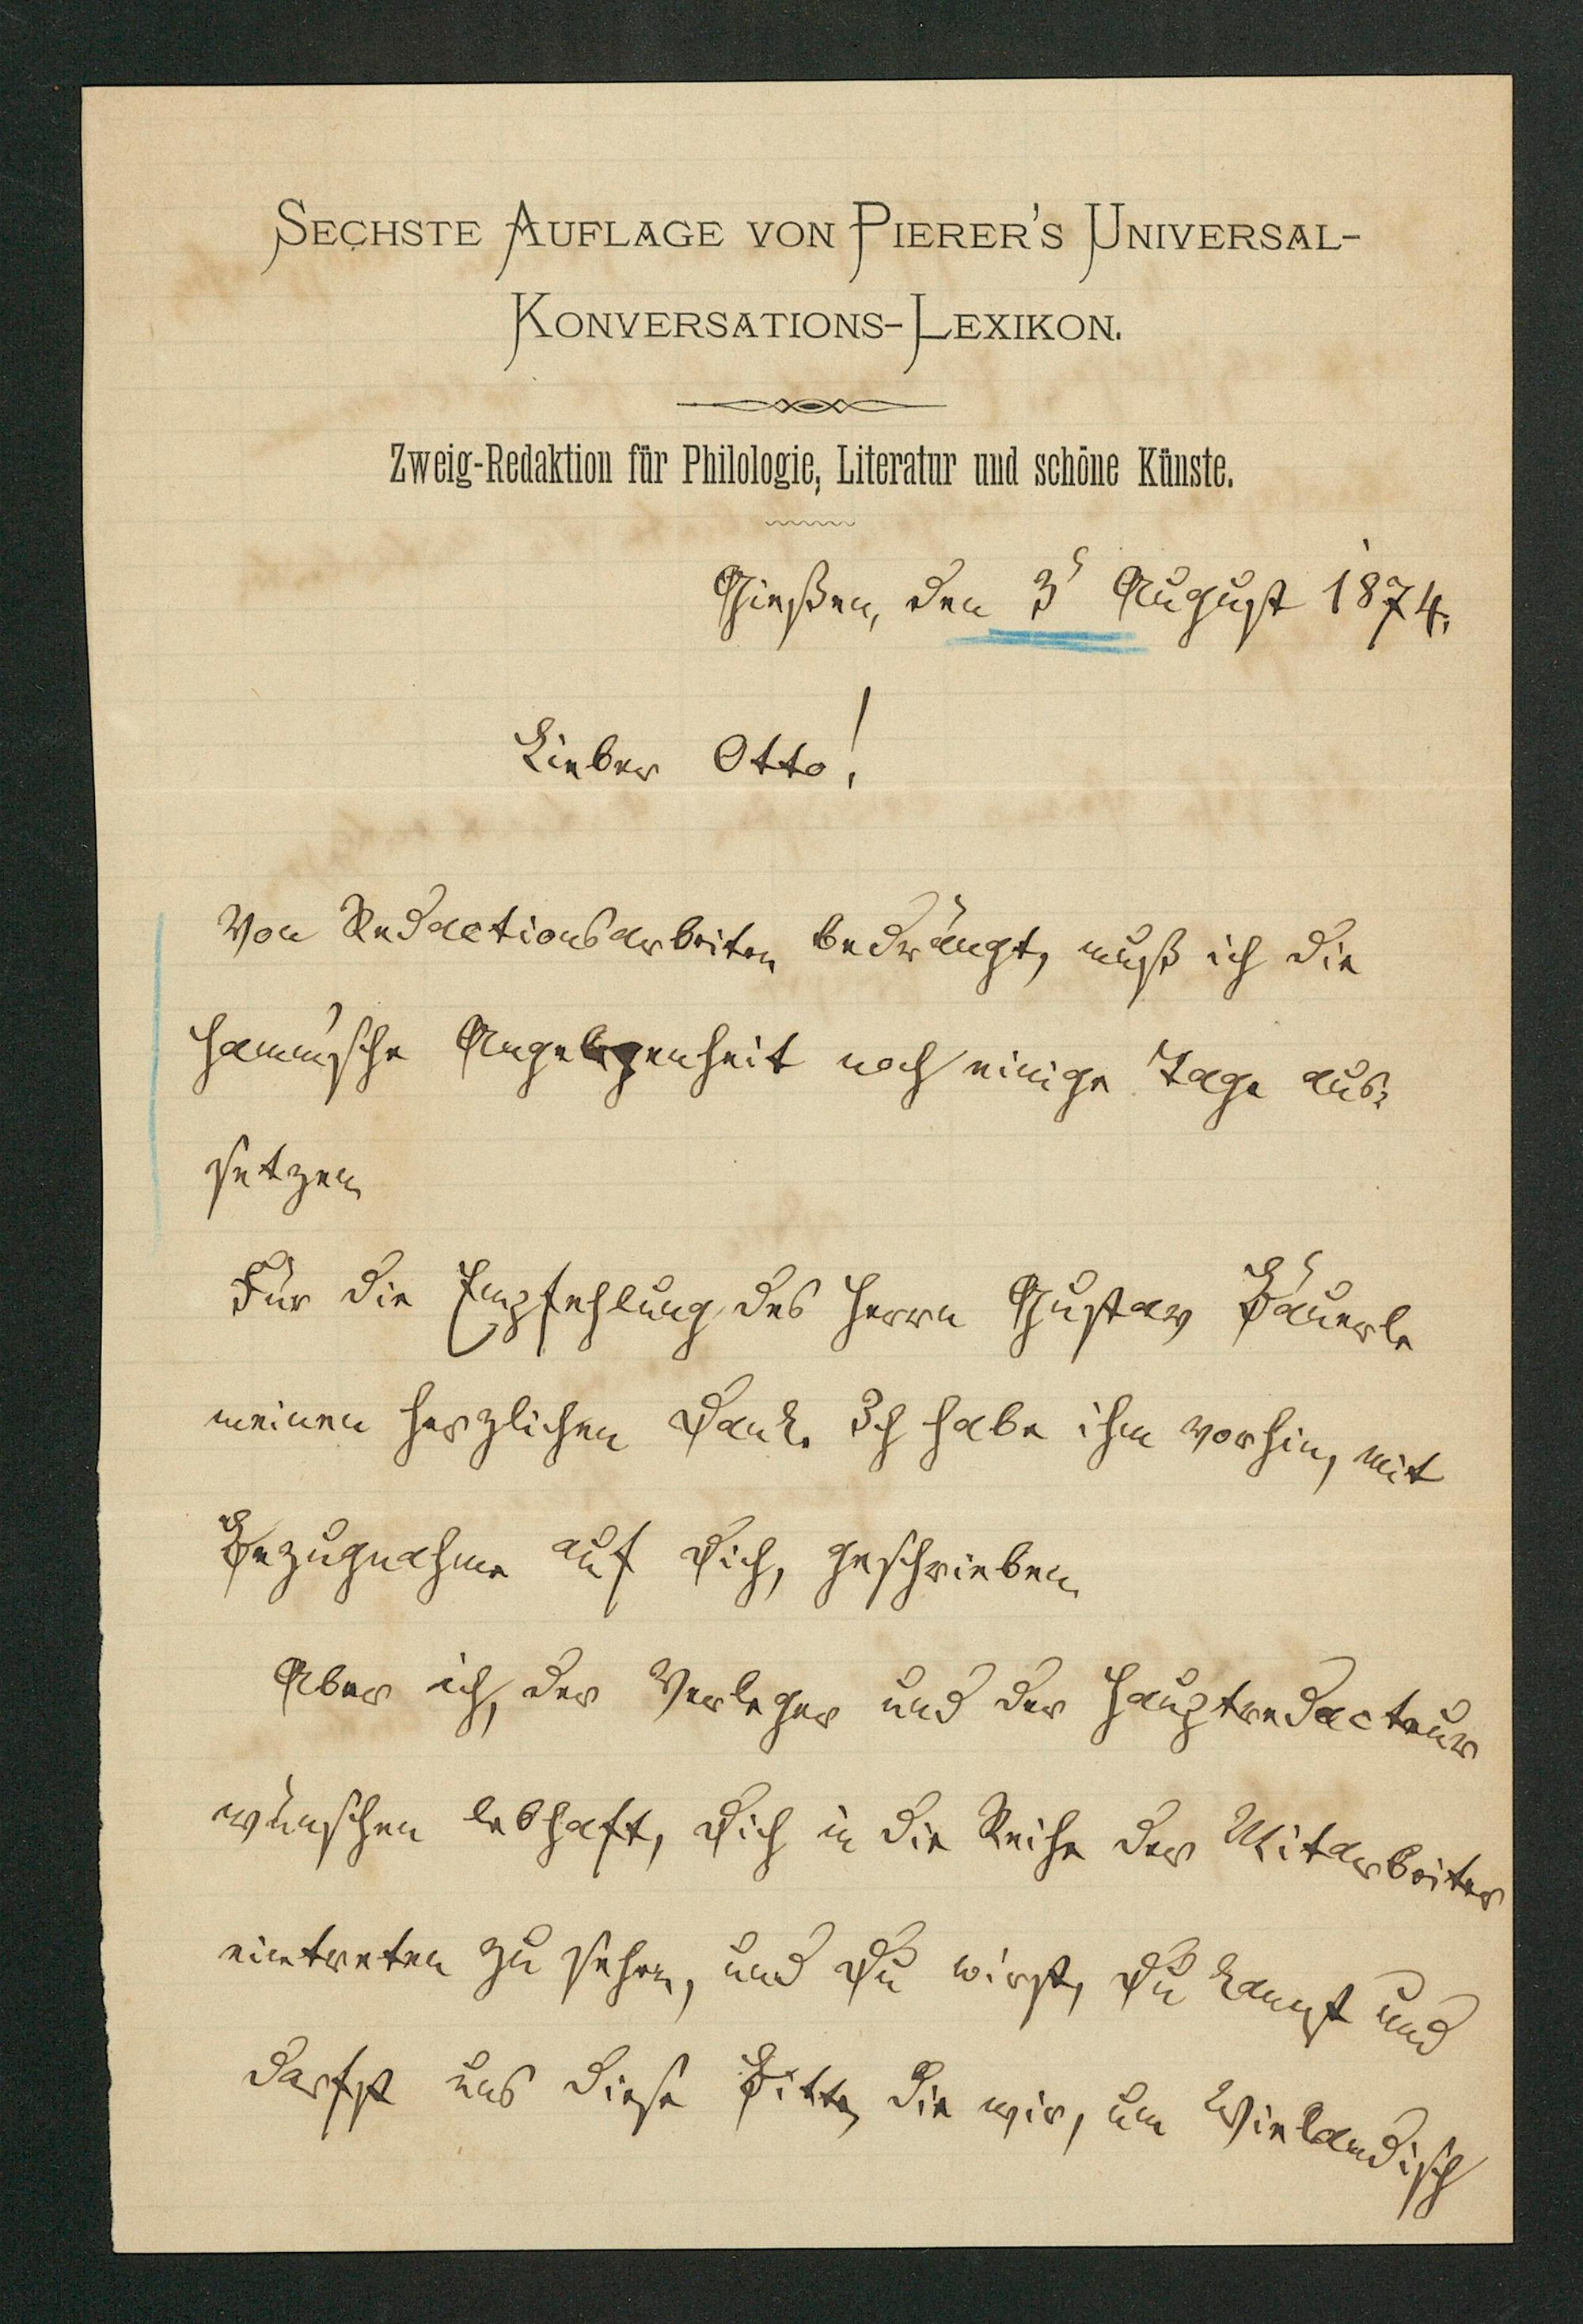 SECHSTE AUFLAGE VON PIERER'S UNIVERSAL-
KONVERSATIONS-LEXIKON.
Zweig-Redaktion für Philologie, Literatur und schöne Künste.
Gießen, den 3ʳ August 1874.
Lieber Otto!
Von Redactionsarbeiten bedrängt, muß ich die
Hamm'sche Angelegenheit noch einige Tage aus-
setzen
Für die Empfehlung des Herrn Gustav Bäuerle
meinen herzlichen Dank. Ich habe ihm vorhin, mit
Bezugnahme auf Dich, geschrieben
Aber ich, der Verleger und der Hauptredacteur
wünschen lebhaft, Dich in die Reihe der Mitarbeiter
eintreten zu sehen, und Du wirst, Du kannst und
darfst uns diese Bitte, die wir, um Wielandisch